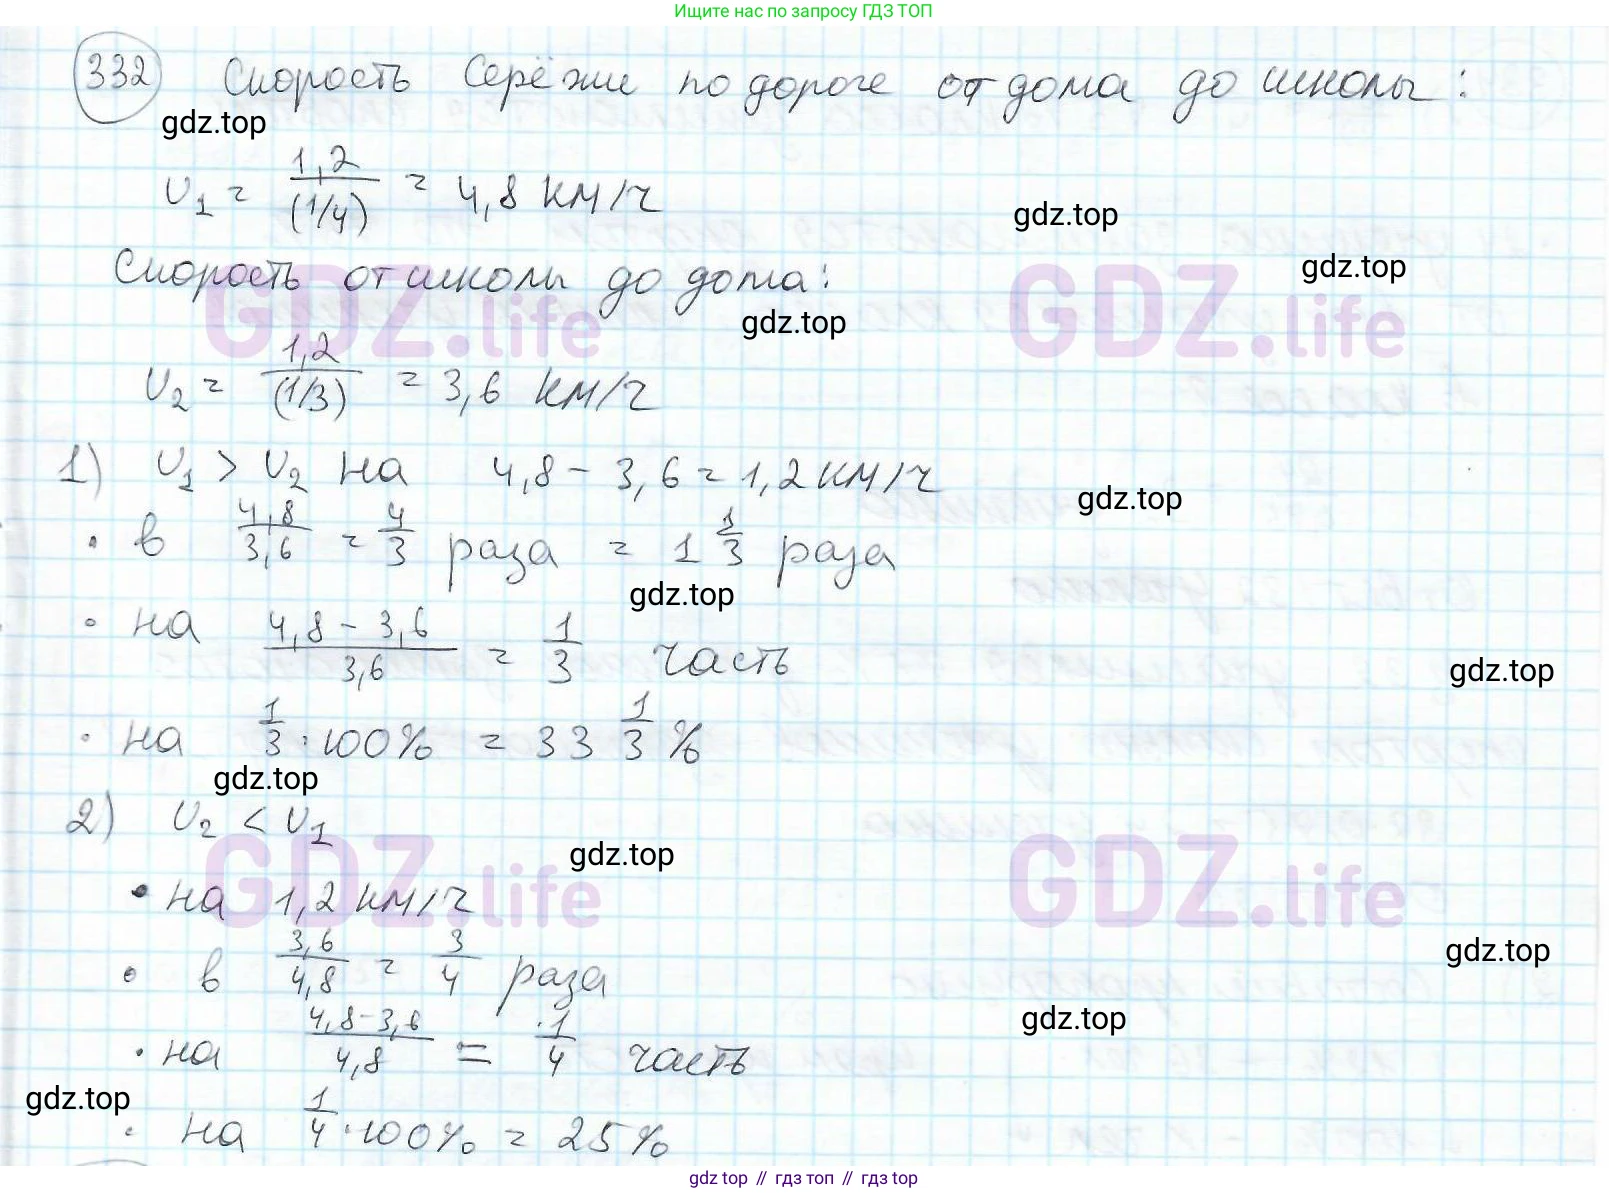 Ищите нас по запросу ГДЗ ТОП
332 Скорость Серёжи по дороге от дома до школы:
gdz.top
υ₁ = 1,2/(1/4) = 4,8 км/ч
gdz.top
Скорость от школы до дома:
gdz.top
GDZ.life GDZ.life
gdz.top
υ₂ = 1,2/(1/3) = 3,6 км/ч
1) υ₁ > υ₂ на 4,8 - 3,6 = 1,2 км/ч
gdz.top
• в 4,8/3,6 = 4/3 раза = 1 1/3 раза
gdz.top
• на (4,8 - 3,6)/3,6 = 1/3 часть
gdz.top
• на 1/3 · 100% = 33 1/3 %
gdz.top
2) υ₂ < υ₁
gdz.top
GDZ.life GDZ.life
• на 1,2 км/ч
gdz.top
• в 3,6/4,8 = 3/4 раза
gdz.top
• на (4,8-3,6)/4,8 = 1/4 часть
gdz.top
• на 1/4 · 100% = 25%
gdz top // гдз топ // gdz top